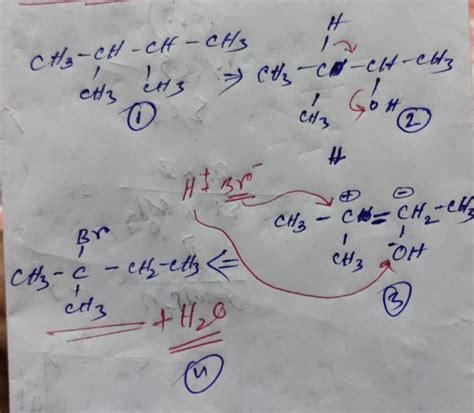 H
CH₃-CH-CH-CH₃ ⇒ CH₃-C-CH-CH₃
CH₃ CH₃ CH₃ OH
① ②
H
H± Br⁻
⊕ ⊖
CH₃-C=C H₂-CH₃
CH₃ OH
③
Br
CH₃-C-CH₂-CH₃ ⇐
CH₃
+ H₂O
④